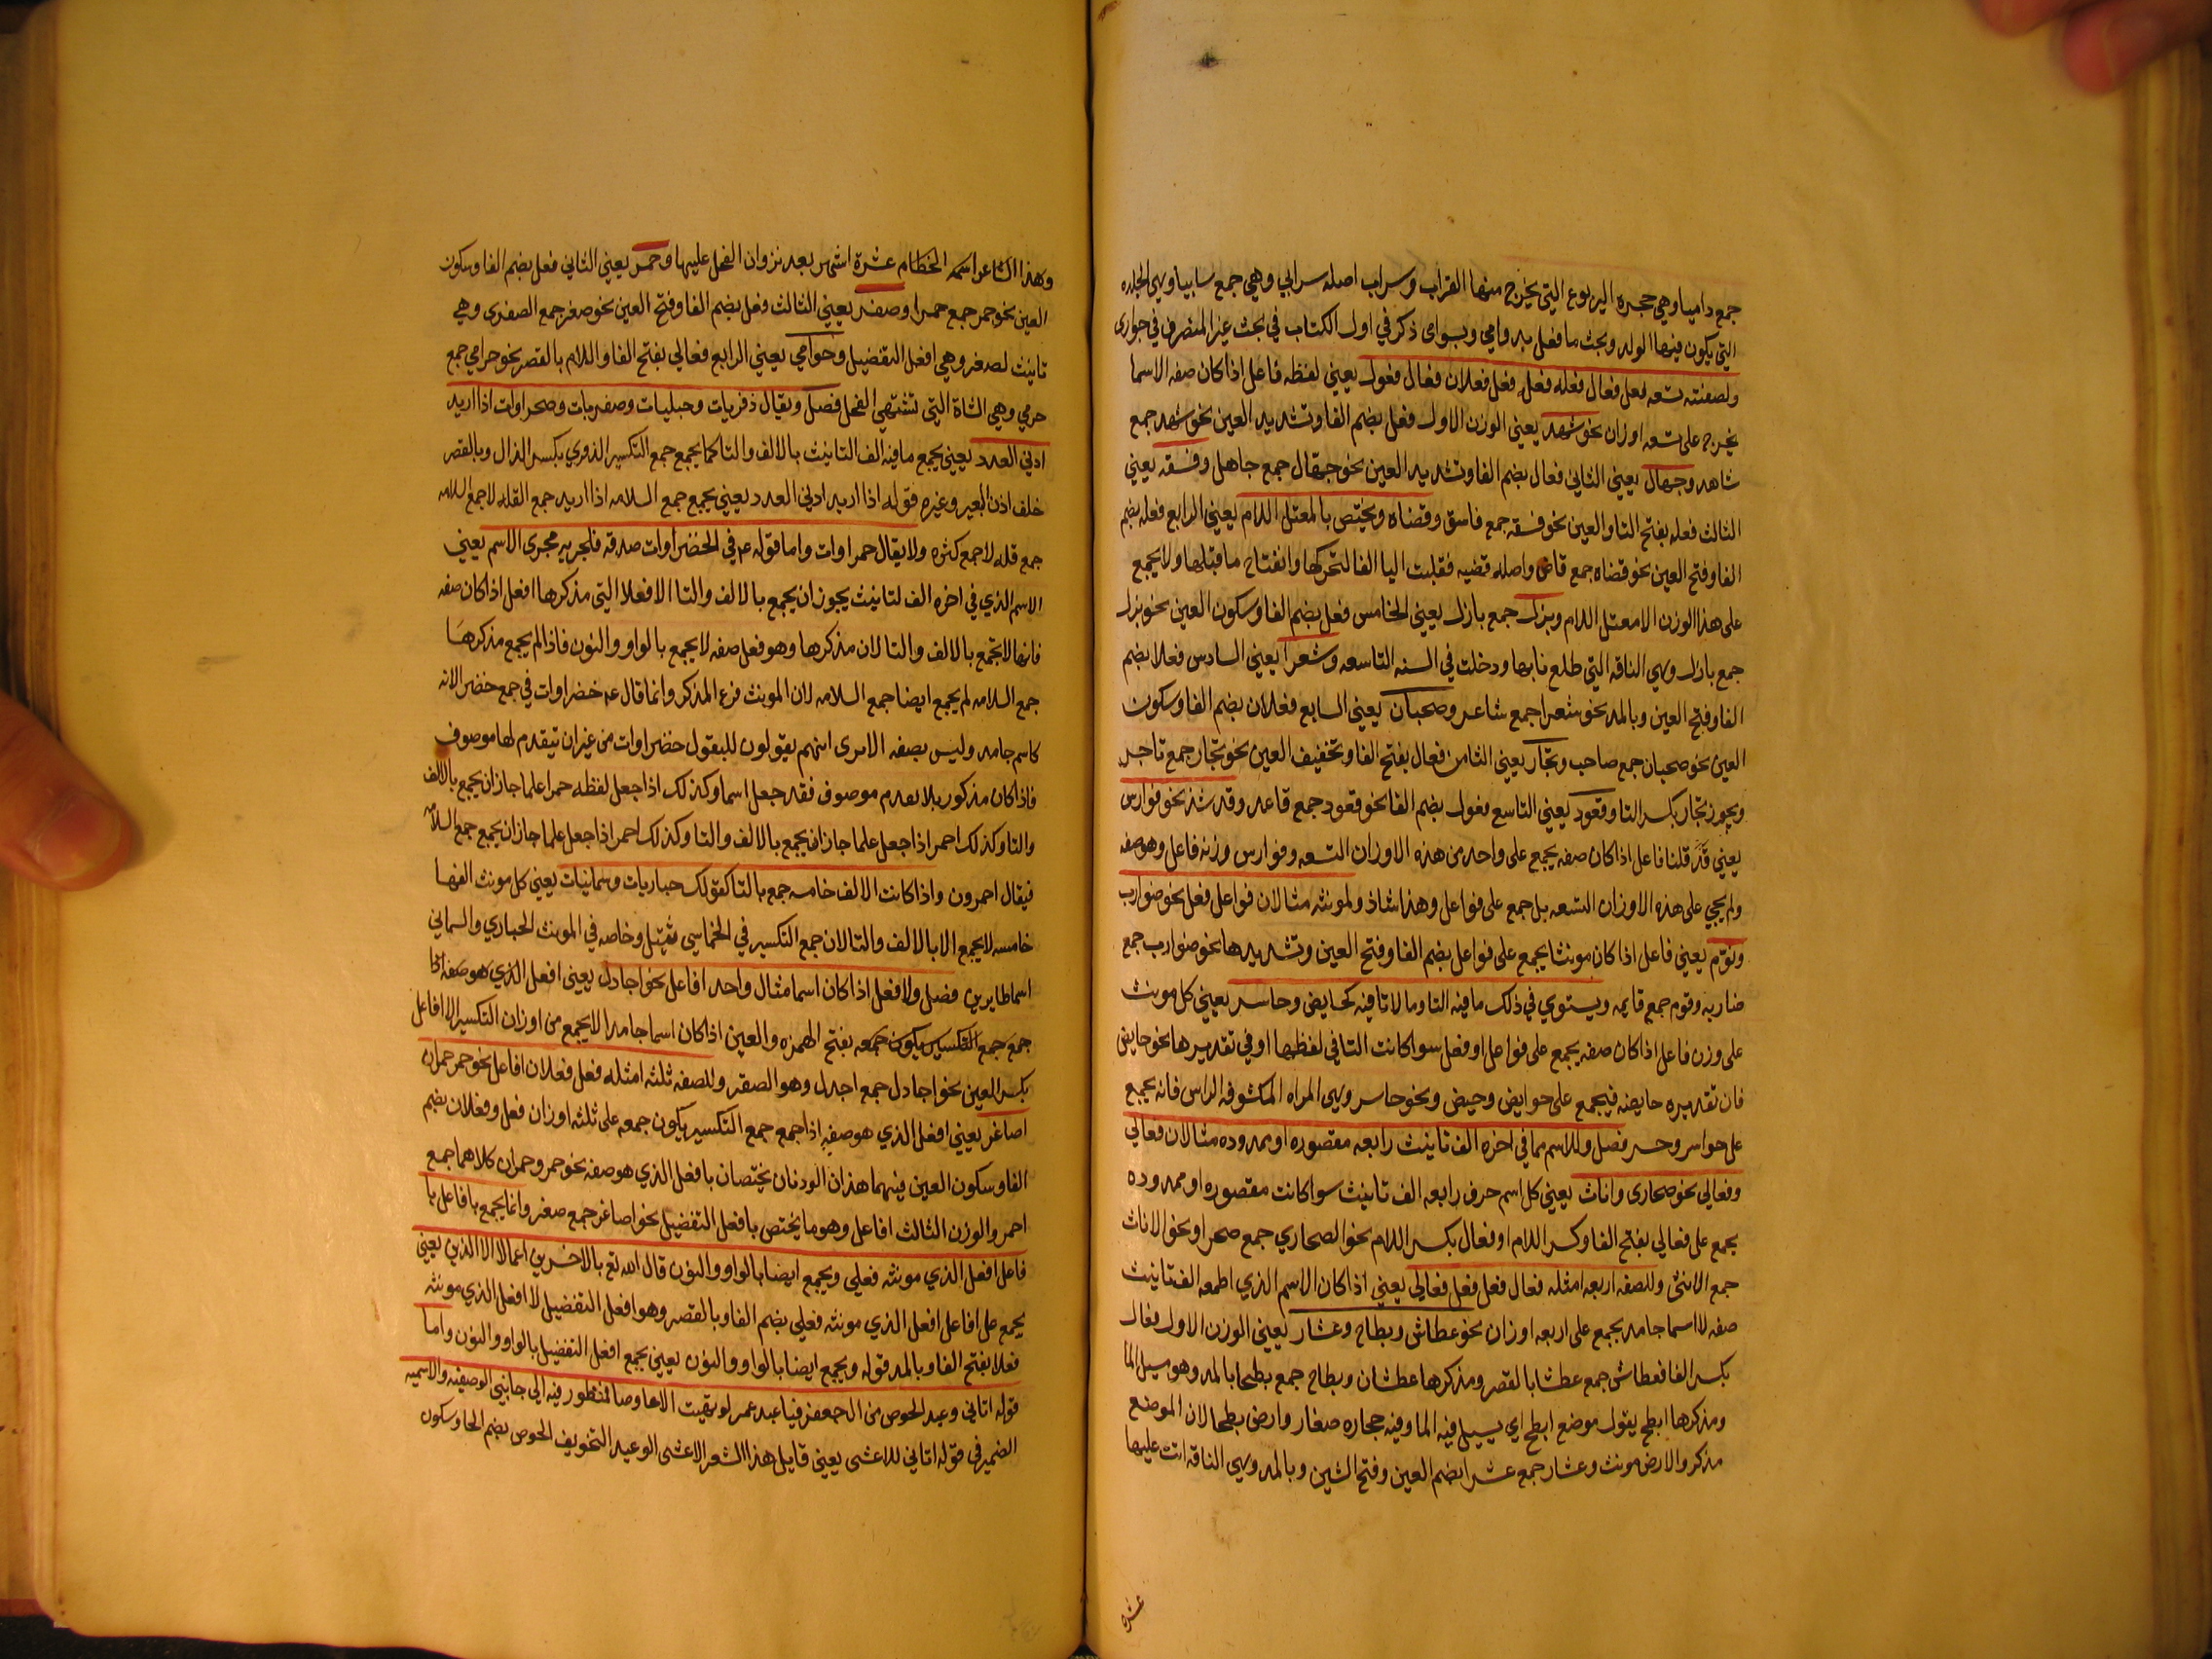 جمع داميا وهي حجره اليربوع التي يخرج منها القراب وسراب اصله سرابي وهي جمع سابيا وهي الجلده
التي يكون فيها الولد وبحث ما فعل بد وامي وبسوای ذكر في اول الكتاب في بحث غير المنصرف في جواری
ولصفته تسعه فعل فعال فعله فعله فعل فعلان فعال فعول يعني لفظه فاعل اذا كان صفه الاسما
يخرج على تسعه اوزان نحو شهد يعني الوزن الاول فعل بضم الفا وتشديد العين نحو شهد جمع
شاهد وجهال يعني الثاني فعال بضم الفا وتشديد العين نحو جهال جمع جاهل وفسقه يعني
الثالث فعله بفتح التا والعين نحو فسقه جمع فاسق وقضاه ويختص بالمعتل اللام يعني الرابع فعله بضم
الفا وفتح العين نحو قضاه جمع قاض واصله قضيه فقلبت اليا الفا لتحركها وانفتاح ما قبلها ولا يجمع
على هذا الوزن الا معتل اللام وبزل جمع بازل يعني الخامس فعل بضم الفا وسكون العين نحو بزل
جمع بازل وهي الناقه التي طلع نابها ودخلت في السنه التاسعه وشعرا يعني السادس فعلا بضم
الفا وفتح العين وبالمد نحو شعرا جمع شاعر وصحبان يعني السابع فعلان بضم الفا وسكون
العين نحو صحبان جمع صاحب وتجار يعني الثامن فعال بفتح الفا وتخفيف العين نحو تجار جمع تاجر
ويجوز تجار بكسر التا وقعود يعني التاسع فعول بضم الفا نحو قعود جمع قاعد وقد شذ نحو فوارس
يعني قد قلنا فاعل اذا كان صفه يجمع على واحد من هذه الاوزان التسعه وفوارس وزنه فاعل وهو صفه
ولم يجي على هذه الاوزان التسعه بل جمع على فواعل وهذا شاذ ولمونثه مثالان فواعل فعل نحو ضوارب
ونوم يعني فاعل اذا كان مونثا يجمع على فواعل بضم الفا وفتح العين وتشديدها نحو ضوارب جمع
ضاربه وقوم جمع قايمه ويستوي في ذلك ما فيه التا وما لا تا فيه كحايض وحاسر يعني كل مونث
على وزن فاعل اذا كان صفه يجمع على فواعل او فعل سوا كانت التا في لفظها او في تقديرها نحو حايض
فان تقديره حايضه فيجمع على حوايض وحيض ونحو حاسر وهي المراه المكشوفه الراس فانه يجمع
على حواسر وحسر فصل وللاسم مما في اخره الف تانيث رابعه مقصوره او ممدوده مثالان فعالي
وفعالي نحو صحاری واناث يعني كل اسم حرف رابعه الف تانيث سوا كانت مقصوره او ممدوده
يجمع على فعالي بفتح الفا وكسر اللام او فعال بكسر اللام نحو الصحاري جمع صحرا ونحو الاناث
جمع الانثی وللصفه اربعه امثله فعال فعل فعل فعالي يعني اذا كان الاسم الذي اطمعه الف تانيث
صفه لا اسما جامد يجمع على اربعه اوزان نحو عطاش وبطاح وعشار يعني الوزن الاول فعال
بكسر الفا فعطاش جمع عطشا بالقصر ومذكرها عطشان وبطاح جمع بطحا بالمد وهو مسيل الما
ومذكرها ابطح يقول موضع ابطح اي يسيل فيه الما وفيه حجاره صغار وارض بطحا لان الموضع
مذكر والارض مونث وعشار جمع عشرا بضم العين وفتح الشين وبالمد وهي الناقه اتت عليها
عشره
وهذا الشاعر اسمه الخطام عشرة اشهر بعد نزوان الفحل عليها وحمر يعني الثاني فعل بضم الفا وسكون
العين نحو حمر جمع حمرا وصغر يعني الثالث فعل بضم الفا وفتح العين نحو صغر جمع الصغری وهي
تانيث لصغر وهي افعل التفضيل وحوامي يعني الرابع فعالي بفتح الفا واللام بالقصر نحو حرامي جمع
حرمي وهي الشاة التي تشتهي الفحل فصل ويقال ذفريات وحبليات وصغريات وصحراوات اذا اريد
ادني العدد يعني يجمع ما فيه الف التانيث بالالف والتا كما يجمع جمع التكسير الذفري بكسر الذال وبالقصر
خلف اذن البعير وغيره قوله اذا اريد ادني العدد يعني يجمع جمع السلامه اذا اريد جمع القله لا جمع السلامه
جمع قله لا جمع كثره ولا يقال حمراوات واما قوله عم في الخضراوات صدقه فلجريه مجری الاسم يعني
الاسم الذي في اخره الف لتانيث يجوز ان يجمع بالالف والتا الا فعلا التي مذكرها افعل اذا كان صفه
فانها لا تجمع بالالف والتا لان مذكرها وهو فعل صفه لا يجمع بالواو والنون فاذا لم يجمع مذكرها
جمع السلامه لم يجمع ايضا جمع السلامه لان المونث فرع المذكر وانما قال عم خضراوات في جمع خضرا لانه
كاسم جامد وليس بصفه الا تری انهم يقولون للبقول خضراوات من غير ان يتقدم لها موصوف
فاذا كان مذكور بلا تعدم موصوف فقد جعل اسما وكذلك اذا جعل لفظه حمرا علما جاز ان يجمع بالالف
والتا وكذلك احمر اذا جعل علما جاز ان يجمع بالالف والتا وكذلك احمر اذا جعل علما جاز ان يجمع جمع السلامه
فيقال احمرون واذا كانت الالف خامسه جمع بالتا كقولك حباريات وسمانيات يعني كل مونث الفها
خامسه لا يجمع الا بالالف والتا لان جمع التكسير في الخماسي ثقيل وخاصه في المونث الحباري والسماني
اسما طايرين فصل ولافعل اذا كان اسما مثال واحد افاعل نحو اجادل يعني افعل الذي هو صفه اذا
جمع جمع التكسير يكون جمعه بفتح الهمزه والعين اذا كان اسما جامدا لا يجمع من اوزان التكسير الا افاعل
بكسر العين نحو اجادل جمع اجدل وهو الصقر وللصفه ثلثه امثله فعل فعلان افاعل نحو حمر حمران
اصاغر يعني افعل الذي هو صفه اذا جمع جمع التكسير يكون جمعه على ثلثه اوزان فعل وفعلان بضم
الفا وسكون العين فيهما هذان الوزنان يختصان بافعل الذي هو صفه نحو حمر وحمران كلاهما جمع
احمر والوزن الثالث افاعل وهو ما يختص بافعل التفضيل نحو اصاغر جمع صغر وانما يجمع بافاعل با
فاعل افعل الذي مونثه فعلي ويجمع ايضا بالواو والنون قال الله تع بالاخسرين اعمالا الا الذين يعني
يجمع على افاعل افعل الذي مونثه فعلي بضم الفا وبالقصر وهو افعل التفضيل لا افعل الذي مونثه
فعلا بفتح الفا وبالمد قوله ويجمع ايضا بالواو والنون يعني يجمع افعل التفضيل بالواو والنون واما
قوله اتاني وعيد الحوص من ال جعفر فيا عبد عمر لو نهيت الاحاوصا فمنظور فيه الي جانبي الوصفيه والاسميه
الضمير في قوله اتاني للاعشی يعني قايل هذا الشعر الاعشی الوعيد التخويف الحوص بضم الحا وسكون